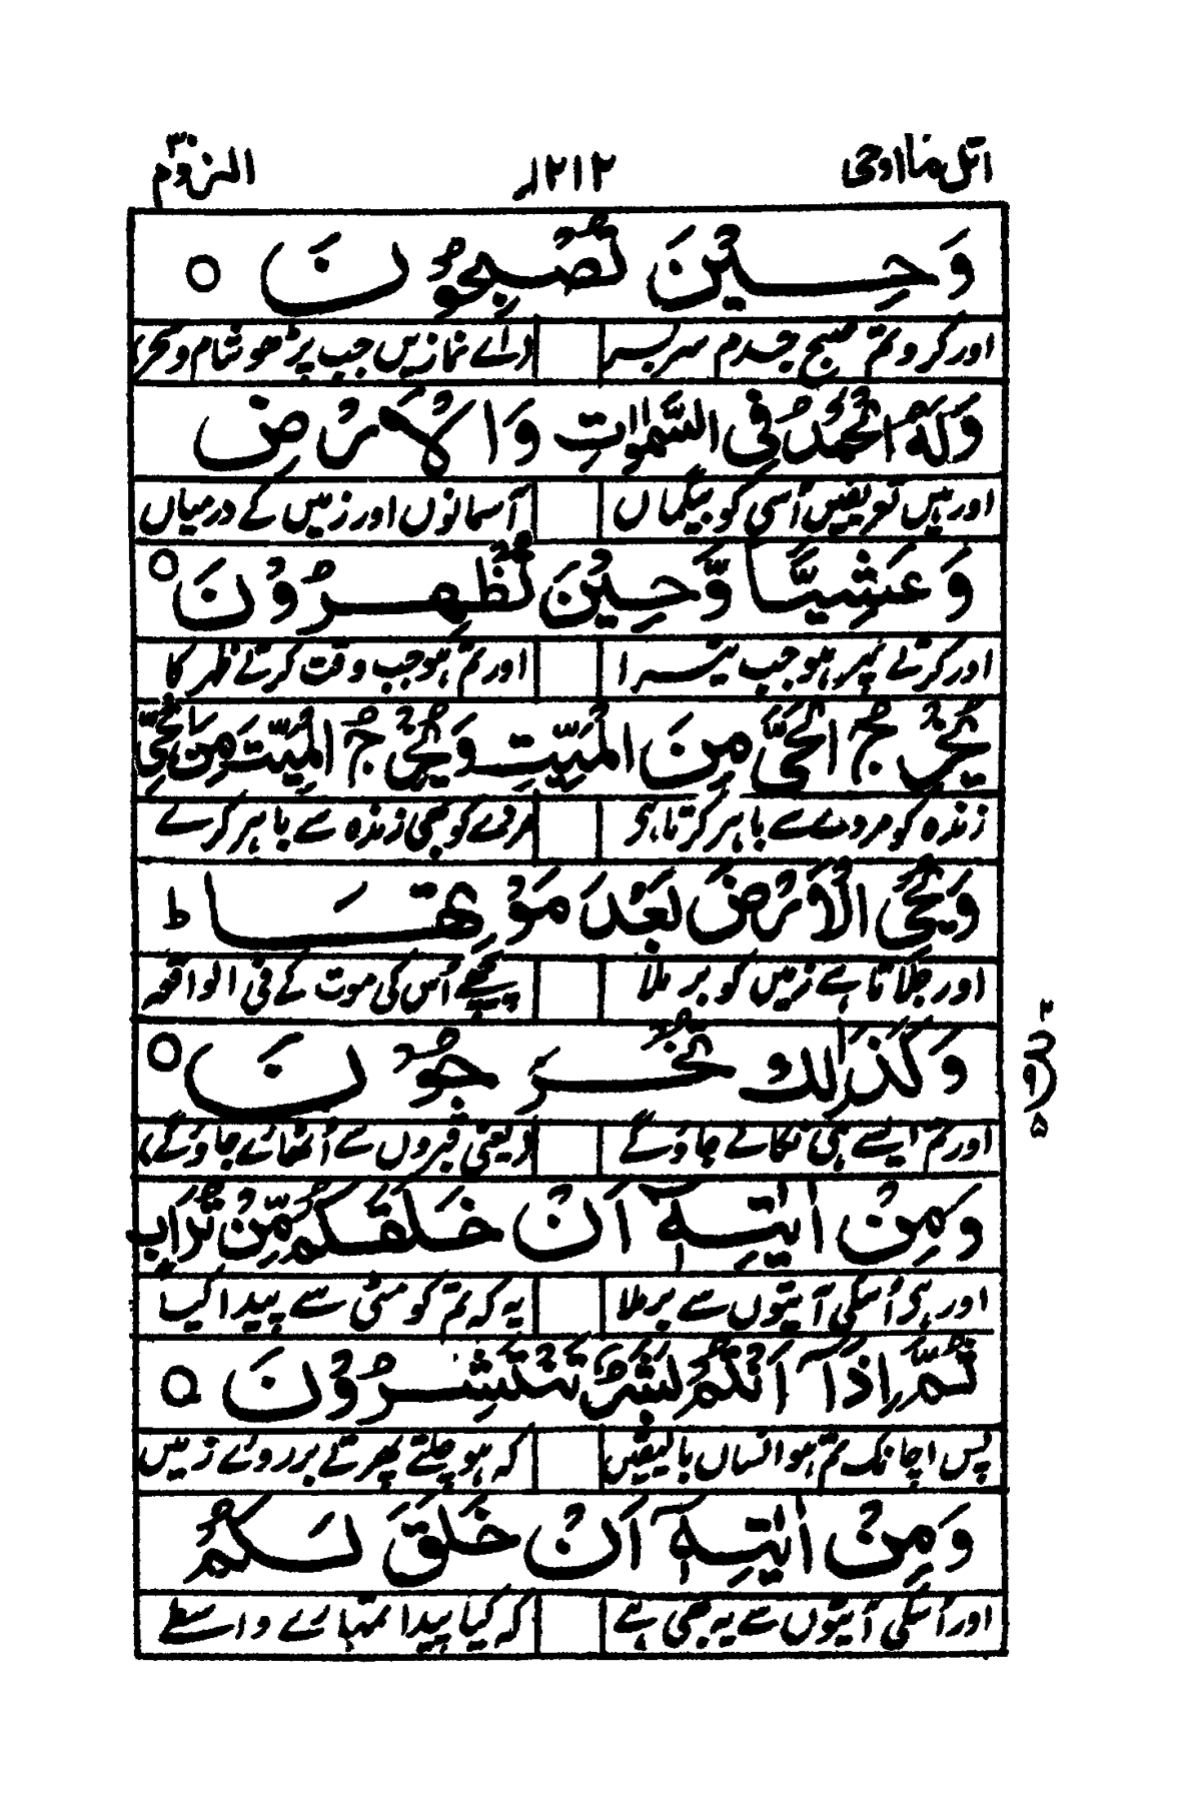 اتل ما اوحی ۱۲۱۲ الروم ۳۰
وَحِيْنَ تُصْبِحُوْنَ ○
اور کرو تم صبح جدم سر بسر (اے نمازیں جب پڑھو شام و سحر)
وَلَهُ الْحَمْدُ فِی السَّمٰوٰتِ وَالْاَرْضِ
اور ہیں تعریفیں اُسی کو بیگماں آسمانوں اور زمیں کے درمیاں
وَعَشِيًّا وَّحِيْنَ تُظْهِرُوْنَ ○
اور کرتے پہر ہو جب اور تم ہو جب وقت کرتے ظہر کا
يُخْرِجُ الْحَیَّ مِنَ الْمَيِّتِ وَيُخْرِجُ الْمَيِّتَ مِنَ الْحَیِّ
زندہ کو مردے سے باہر کرتا ہی مردے کو بھی زندہ سے باہر کرے
وَيُحْیِ الْاَرْضَ بَعْدَ مَوْتِهَا ط
اور جلاتا ہے زمیں کو بر ملا پیچھے اُس کی موت کے فی الواقعہ
وَكَذٰلِكَ تُخْرَجُوْنَ ○
اور تم ایسے ہی نکالے جاؤ گے (یعنی قبروں سے اُٹھائے جاؤ گے)
۲
ع
۵
وَمِنْ اٰيٰتِهٖٓ اَنْ خَلَقَكُمْ مِّنْ تُرَابٍ
اور ہی اُسکی آیتوں سے برملا یہ کہ تم کو مٹی سے پیدا کیا
ثُمَّ اِذَآ اَنْتُمْ بَشَرٌ تَنْتَشِرُوْنَ ○
پس اچانک تم ہو انساں بالیقیں کہ ہو چلتے پھرتے بر روئے زمیں
وَمِنْ اٰيٰتِهٖٓ اَنْ خَلَقَ لَكُمْ
اور اُسکی آیتوں سے یہ بھی ہے کہ کیا پیدا تمہارے واسطے